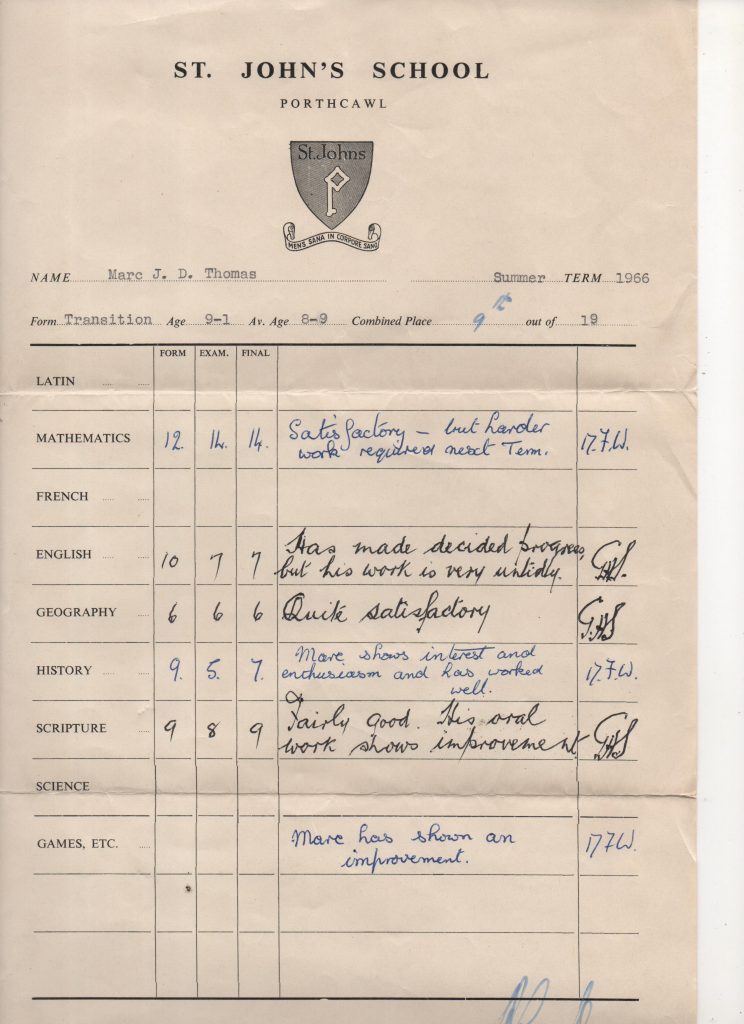 ST. JOHN'S SCHOOL
PORTHCAWL
St.Johns
MENS SANA IN CORPORE SANO
NAME Marc J. D. Thomas Summer TERM 1966
Form Transition Age 9-1 Av. Age 8-9 Combined Place 9th out of 19
FORM EXAM. FINAL
LATIN
MATHEMATICS 12. 14. 14. Satisfactory – but harder
work required next Term.
FRENCH
ENGLISH 10 7 7 Has made decided progress,
but his work is very untidy.
GEOGRAPHY 6 6 6 Quite satisfactory G.H.S
HISTORY 9. 5. 7. Marc shows interest and
enthusiasm and has worked
well.
SCRIPTURE 9 8 9 Fairly good. His oral
work shows improvement
SCIENCE
GAMES, ETC. Marc has shown an
improvement.